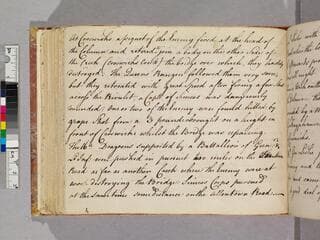 At Crosswicks a piquet of the Enemy fired at the head of
the Column and retired upon a body on the other side of
the Creek (Crosswicks Creek) the bridge over which they had
destroyed. The Queens Rangers followed them very soon,
but they retreated with great speed after firing a few shot
across the Rivulet. A Capt of Simcoes was dangerously
wounded. Two or three of the Enemy were found killed by
grape shot from a 3 pounder brought on a height in
front of Crosswicks whilst the Bridge was repairing.
The Dragoons supported by a Battalion of
were pushed in pursuit two miles on the
Road as far as another Creek where the Enemy were at
work destroying the Bridge. Simcoes Corps pursued
at the same time some distance on the Allentown Road.